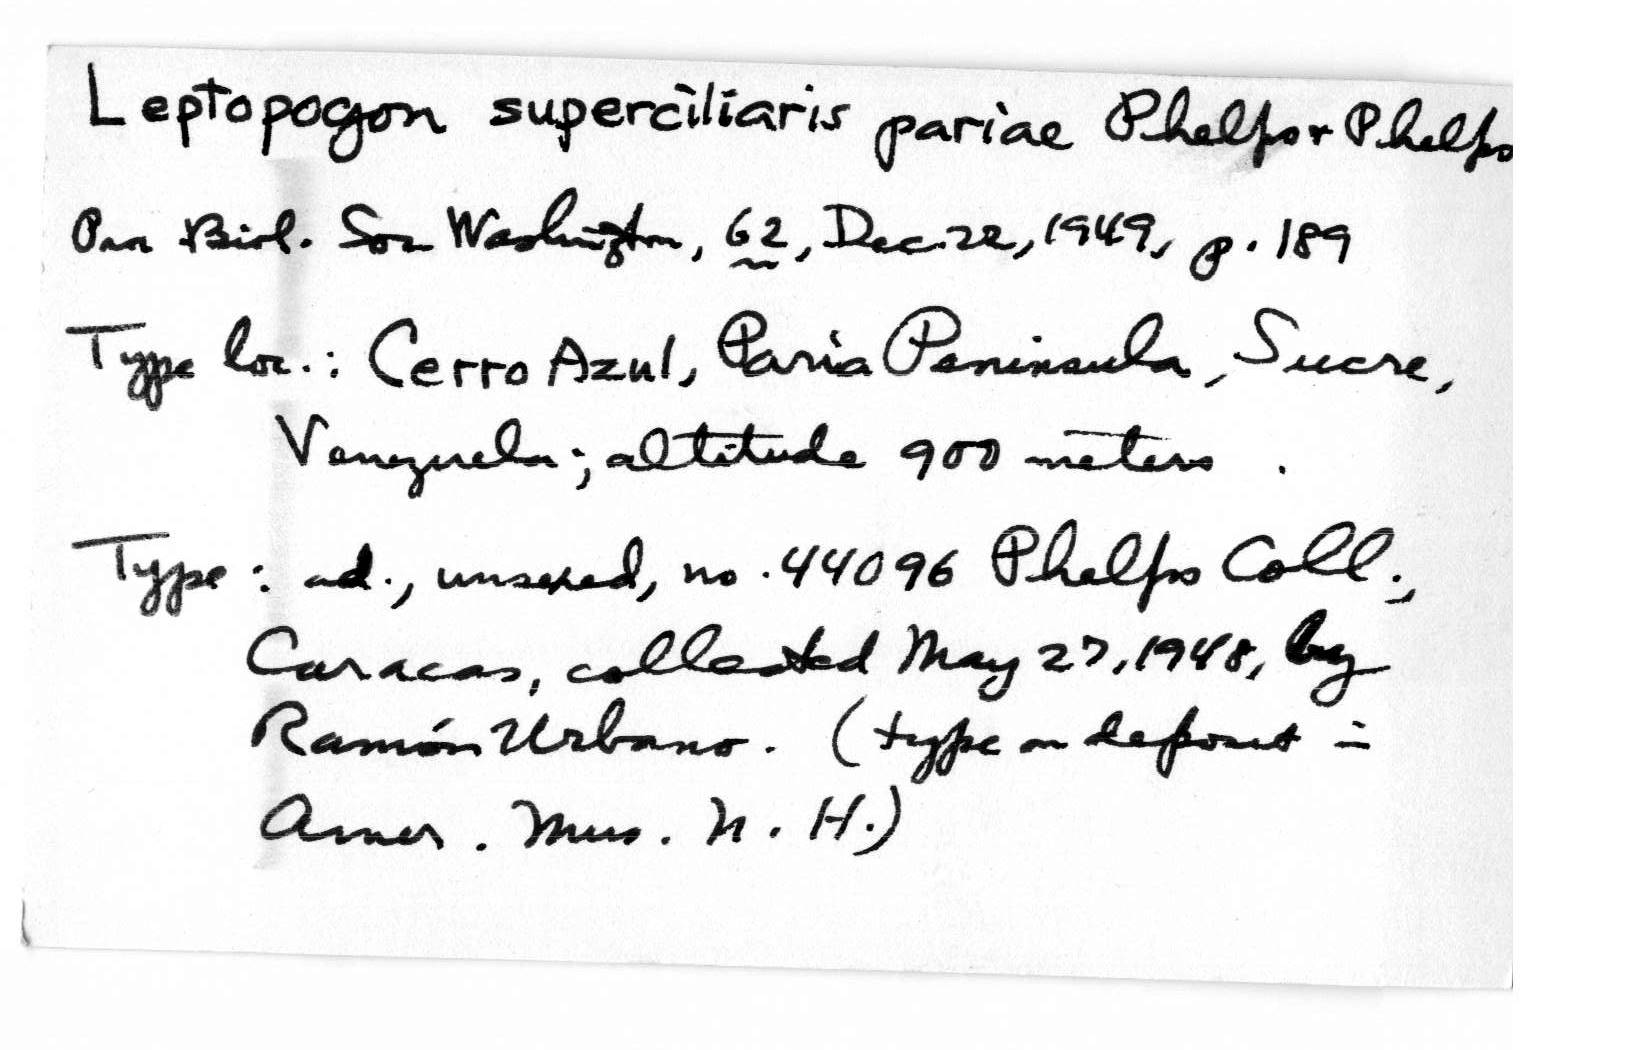 Leptopogon superciliaris pariae Phelps + Phelps
Proc Biol. Soc Washington, 62, Dec. 22, 1949, p. 189
Type loc.: Cerro Azul, Paria Peninsula, Sucre,
Venezuela; altitude 900 meters.
Type: ad., unsexed, no. 44096 Phelps Coll.,
Caracas, collected May 27, 1948, by
Ramón Urbano. (type on deposit in
Amer. Mus. N. H.)